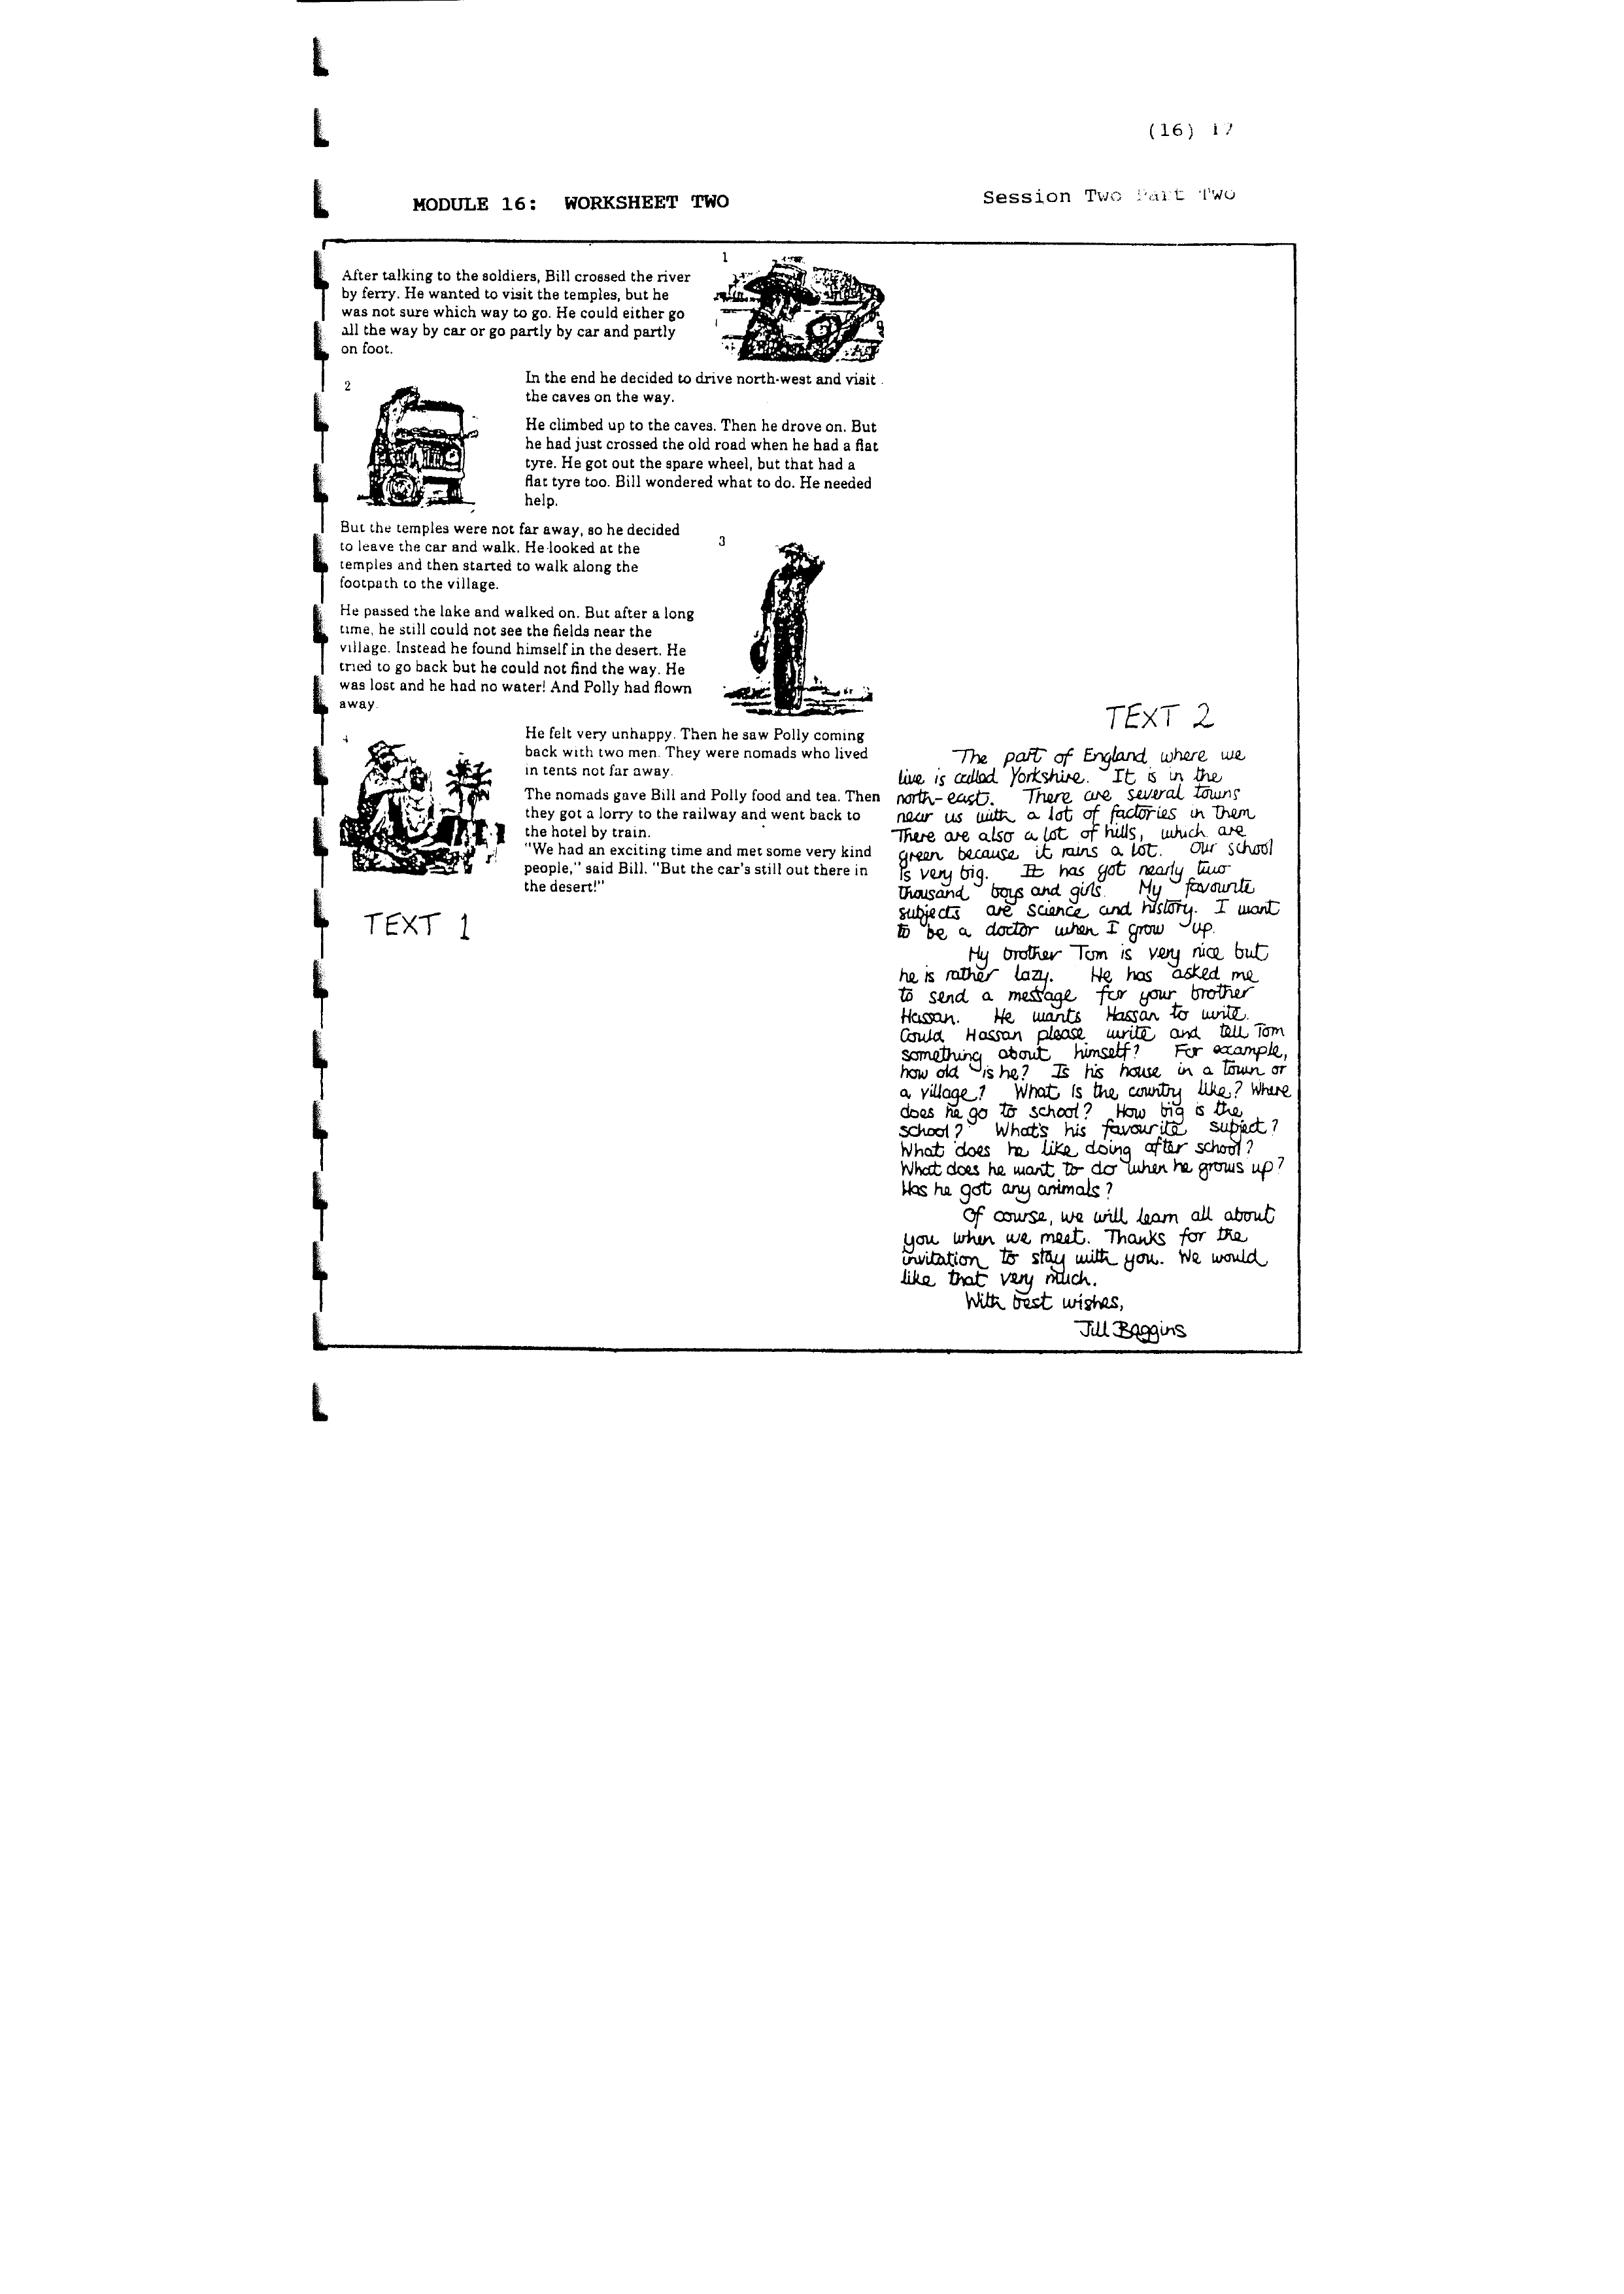 (16) 17
MODULE 16: WORKSHEET TWO
Session Two Part Two
1
After talking to the soldiers, Bill crossed the river
by ferry. He wanted to visit the temples, but he
was not sure which way to go. He could either go
all the way by car or go partly by car and partly
on foot.
2
In the end he decided to drive north-west and visit
the caves on the way.
He climbed up to the caves. Then he drove on. But
he had just crossed the old road when he had a flat
tyre. He got out the spare wheel, but that had a
flat tyre too. Bill wondered what to do. He needed
help.
But the temples were not far away, so he decided
to leave the car and walk. He looked at the
temples and then started to walk along the
footpath to the village.
3
He passed the lake and walked on. But after a long
time, he still could not see the fields near the
village. Instead he found himself in the desert. He
tried to go back but he could not find the way. He
was lost and he had no water! And Polly had flown
away.
4
He felt very unhappy. Then he saw Polly coming
back with two men. They were nomads who lived
in tents not far away.
The nomads gave Bill and Polly food and tea. Then
they got a lorry to the railway and went back to
the hotel by train.
"We had an exciting time and met some very kind
people," said Bill. "But the car's still out there in
the desert!"
TEXT 1
TEXT 2
The part of England where we
live is called Yorkshire. It is in the
north-east. There are several towns
near us with a lot of factories in them
There are also a lot of hills, which are
green because it rains a lot. Our school
is very big. It has got nearly two
thousand boys and girls. My favourite
subjects are science and history. I want
to be a doctor when I grow up.
My brother Tom is very nice but
he is rather lazy. He has asked me
to send a message for your brother
Hassan. He wants Hassan to write.
Could Hassan please write and tell Tom
something about himself? For example,
how old is he? Is his house in a town or
a village? What is the country like? Where
does he go to school? How big is the
school? What's his favourite subject?
What does he like doing after school?
What does he want to do when he grows up?
Has he got any animals?
Of course, we will learn all about
you when we meet. Thanks for the
invitation to stay with you. We would
like that very much.
With best wishes,
Jill Baggins